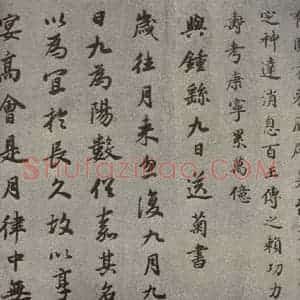 心神達消息百王傳之賴功力
壽考康寧累萬億
與鍾繇九日送菊書
歲往月來忽復九月九
日九為陽數俗嘉其名
以為宜於長久故以享
宴高會是月律中無